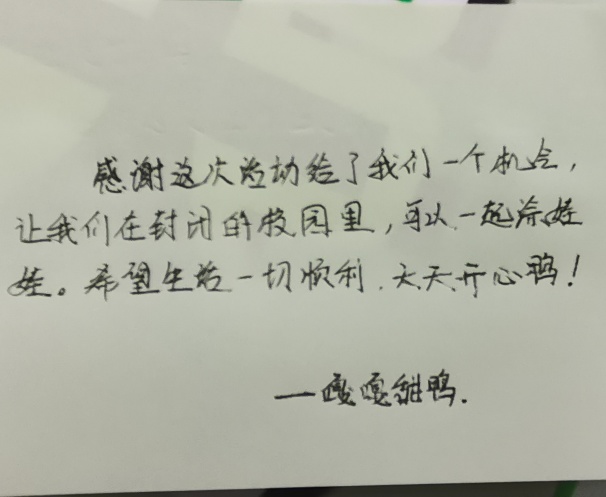 感谢这次活动给了我们一个机会，
让我们在封闭的校园里，可以一起涂娃
娃。希望生活一切顺利，天天开心鸭！
—嘎嘎甜鸭.